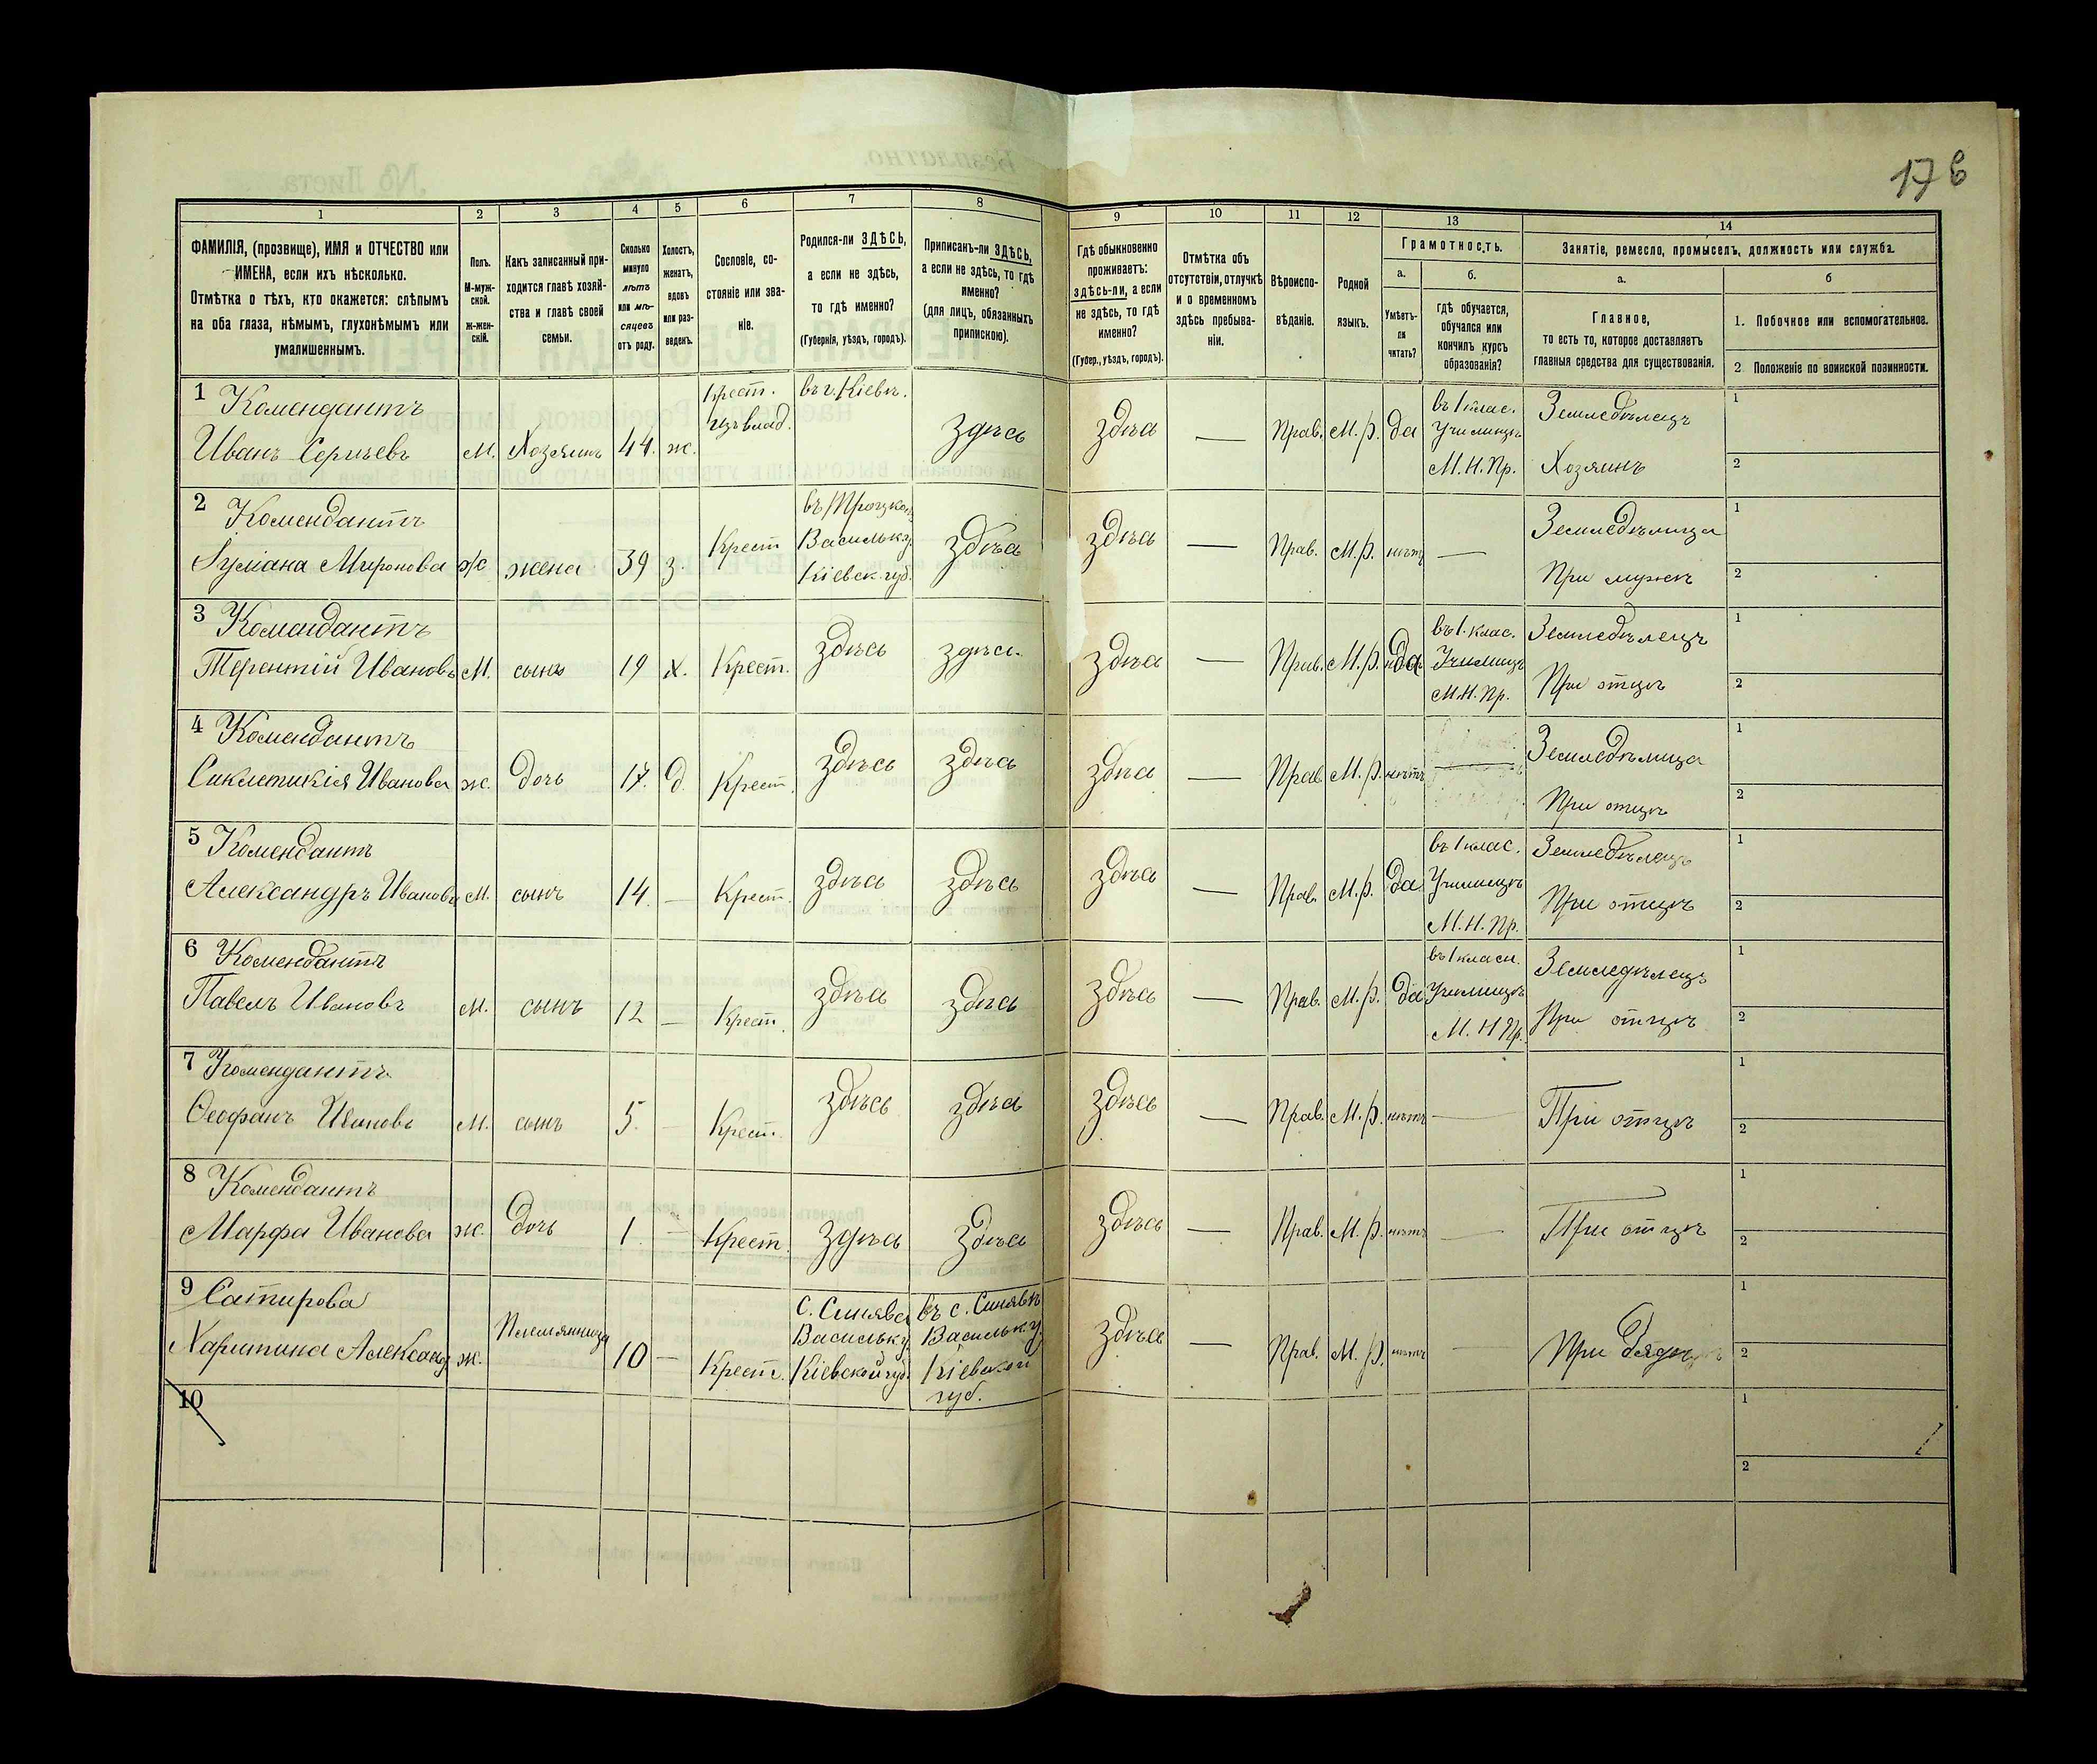 17 6
1 2 3 4 5 6 7 8 9 10 11 12 13 14
ФАМИЛІЯ, (прозвище), ИМЯ и ОТЧЕСТВО или
ИМЕНА, если ихъ нѣсколько.
Отмѣтка о тѣхъ, кто окажется: слѣпымъ
на оба глаза, нѣмымъ, глухонѣмымъ или
умалишеннымъ.
Полъ.
М-муж-
ской.
ж-жен-
скій.
Какъ записанный при-
ходится главѣ хозяй-
ства и главѣ своей
семьи.
Сколько
минуло
лѣтъ
или мѣ-
сяцевъ
отъ роду.
Холостъ,
женатъ,
вдовъ
или раз-
веденъ.
Сословіе, со-
стояніе или зва-
ніе.
Родился-ли ЗДѢСЬ,
а если не здѣсь,
то гдѣ именно?
(Губернія, уѣздъ, городъ).
Приписанъ-ли ЗДѢСЬ,
а если не здѣсь, то гдѣ
именно?
(для лицъ, обязанныхъ
припискою).
Гдѣ обыкновенно
проживаетъ:
здѣсь-ли, а если
не здѣсь, то гдѣ
именно?
(Губер., уѣздъ, городъ).
Отмѣтка объ
отсутствіи, отлучкѣ
и о временномъ
здѣсь пребыва-
ніи.
Вѣроиспо-
вѣданіе.
Родной
языкъ.
Грамотность.
а.
Умѣетъ-
ли
читать?
б.
гдѣ обучается,
обучался или
кончилъ курсъ
образованія?
Занятіе, ремесло, промыселъ, должность или служба.
а.
Главное,
то есть то, которое доставляетъ
главныя средства для существованія.
б
1. Побочное или вспомогательное.
2 Положеніе по воинской повинности.
1 Комендантъ
Иванъ Сергѣевъ
М. Хозяинъ 44. ж.
Крест.
изъ влад.
въ г. Кіевѣ.
здѣсь
здѣсь — Прав. М.р. да
въ 1 клас.
Училищѣ
М.Н.Пр.
Земледѣлецъ
Хозяинъ
1
2
2 Комендантъ
Миронова ж жена 39 з. Крест
Васильк у.
Кіевск. губ.
здѣсь
здѣсь — Прав. М.р. нѣтъ —
Земледѣлица
При мужѣ
1
2
3 Комендантъ
Терентій Ивановъ М. сынъ 19 х. Крест. здѣсь здѣсь
здѣсь — Прав. М.р. да
въ 1. клас.
Училищѣ
М.Н.Пр.
Земледѣлецъ
При отцѣ
1
2
4 Комендантъ
Синклетикія Иванова ж. дочь 17. д. Крест. здѣсь здѣсь
здѣсь — Прав. М.р. нѣтъ —
Земледѣлица
При отцѣ
1
2
5 Комендантъ
Александръ Ивановъ М. сынъ 14. — Крест. здѣсь здѣсь
здѣсь — Прав. М.р. да
въ 1 клас.
Училищѣ
М.Н.Пр.
Земледѣлецъ
При отцѣ
1
2
6 Комендантъ
Павелъ Ивановъ М. сынъ 12 — Крест. здѣсь здѣсь
здѣсь — Прав. М.р. да
въ 1 класн.
Училищѣ
М.Н Пр.
Земледѣлецъ
При отцѣ
1
2
7 Комендантъ
Ѳеофанъ Ивановъ М. сынъ 5. — Крест. здѣсь здѣсь
здѣсь — Прав. М.р. нѣтъ — При отцѣ
1
2
8 Комендантъ
Марфа Иванова ж. дочь 1. — Крест. здѣсь здѣсь
здѣсь — Прав. М.р. нѣтъ — При отцѣ
1
2
9 Сатирова
Харитина Александ ж. Племянница 10 — Крест.
С. Синява
Васильк у.
Кіевской губ.
въ с. Синявѣ
Васильк. у.
Кіевской
губ.
здѣсь — Прав. М.р. нѣтъ — При дядѣ
1
2
10
1
2